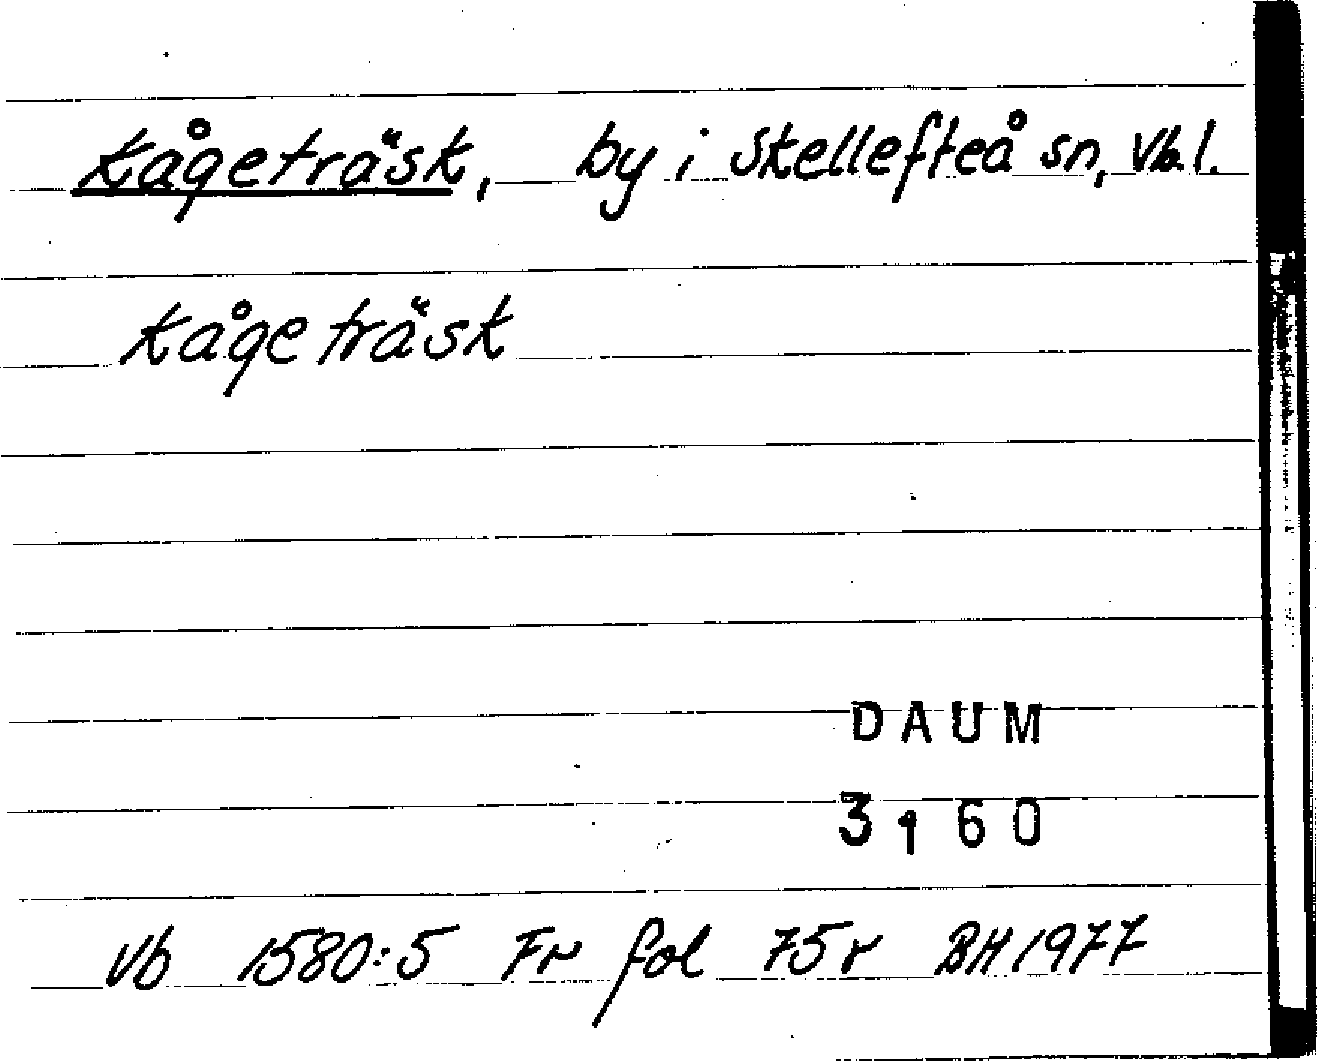 Kågeträsk, by i Skellefteå sn, Vb.l.
Kågeträsk
DAUM
3160
Vb 1580:5 Fr fol 75r BH 1977